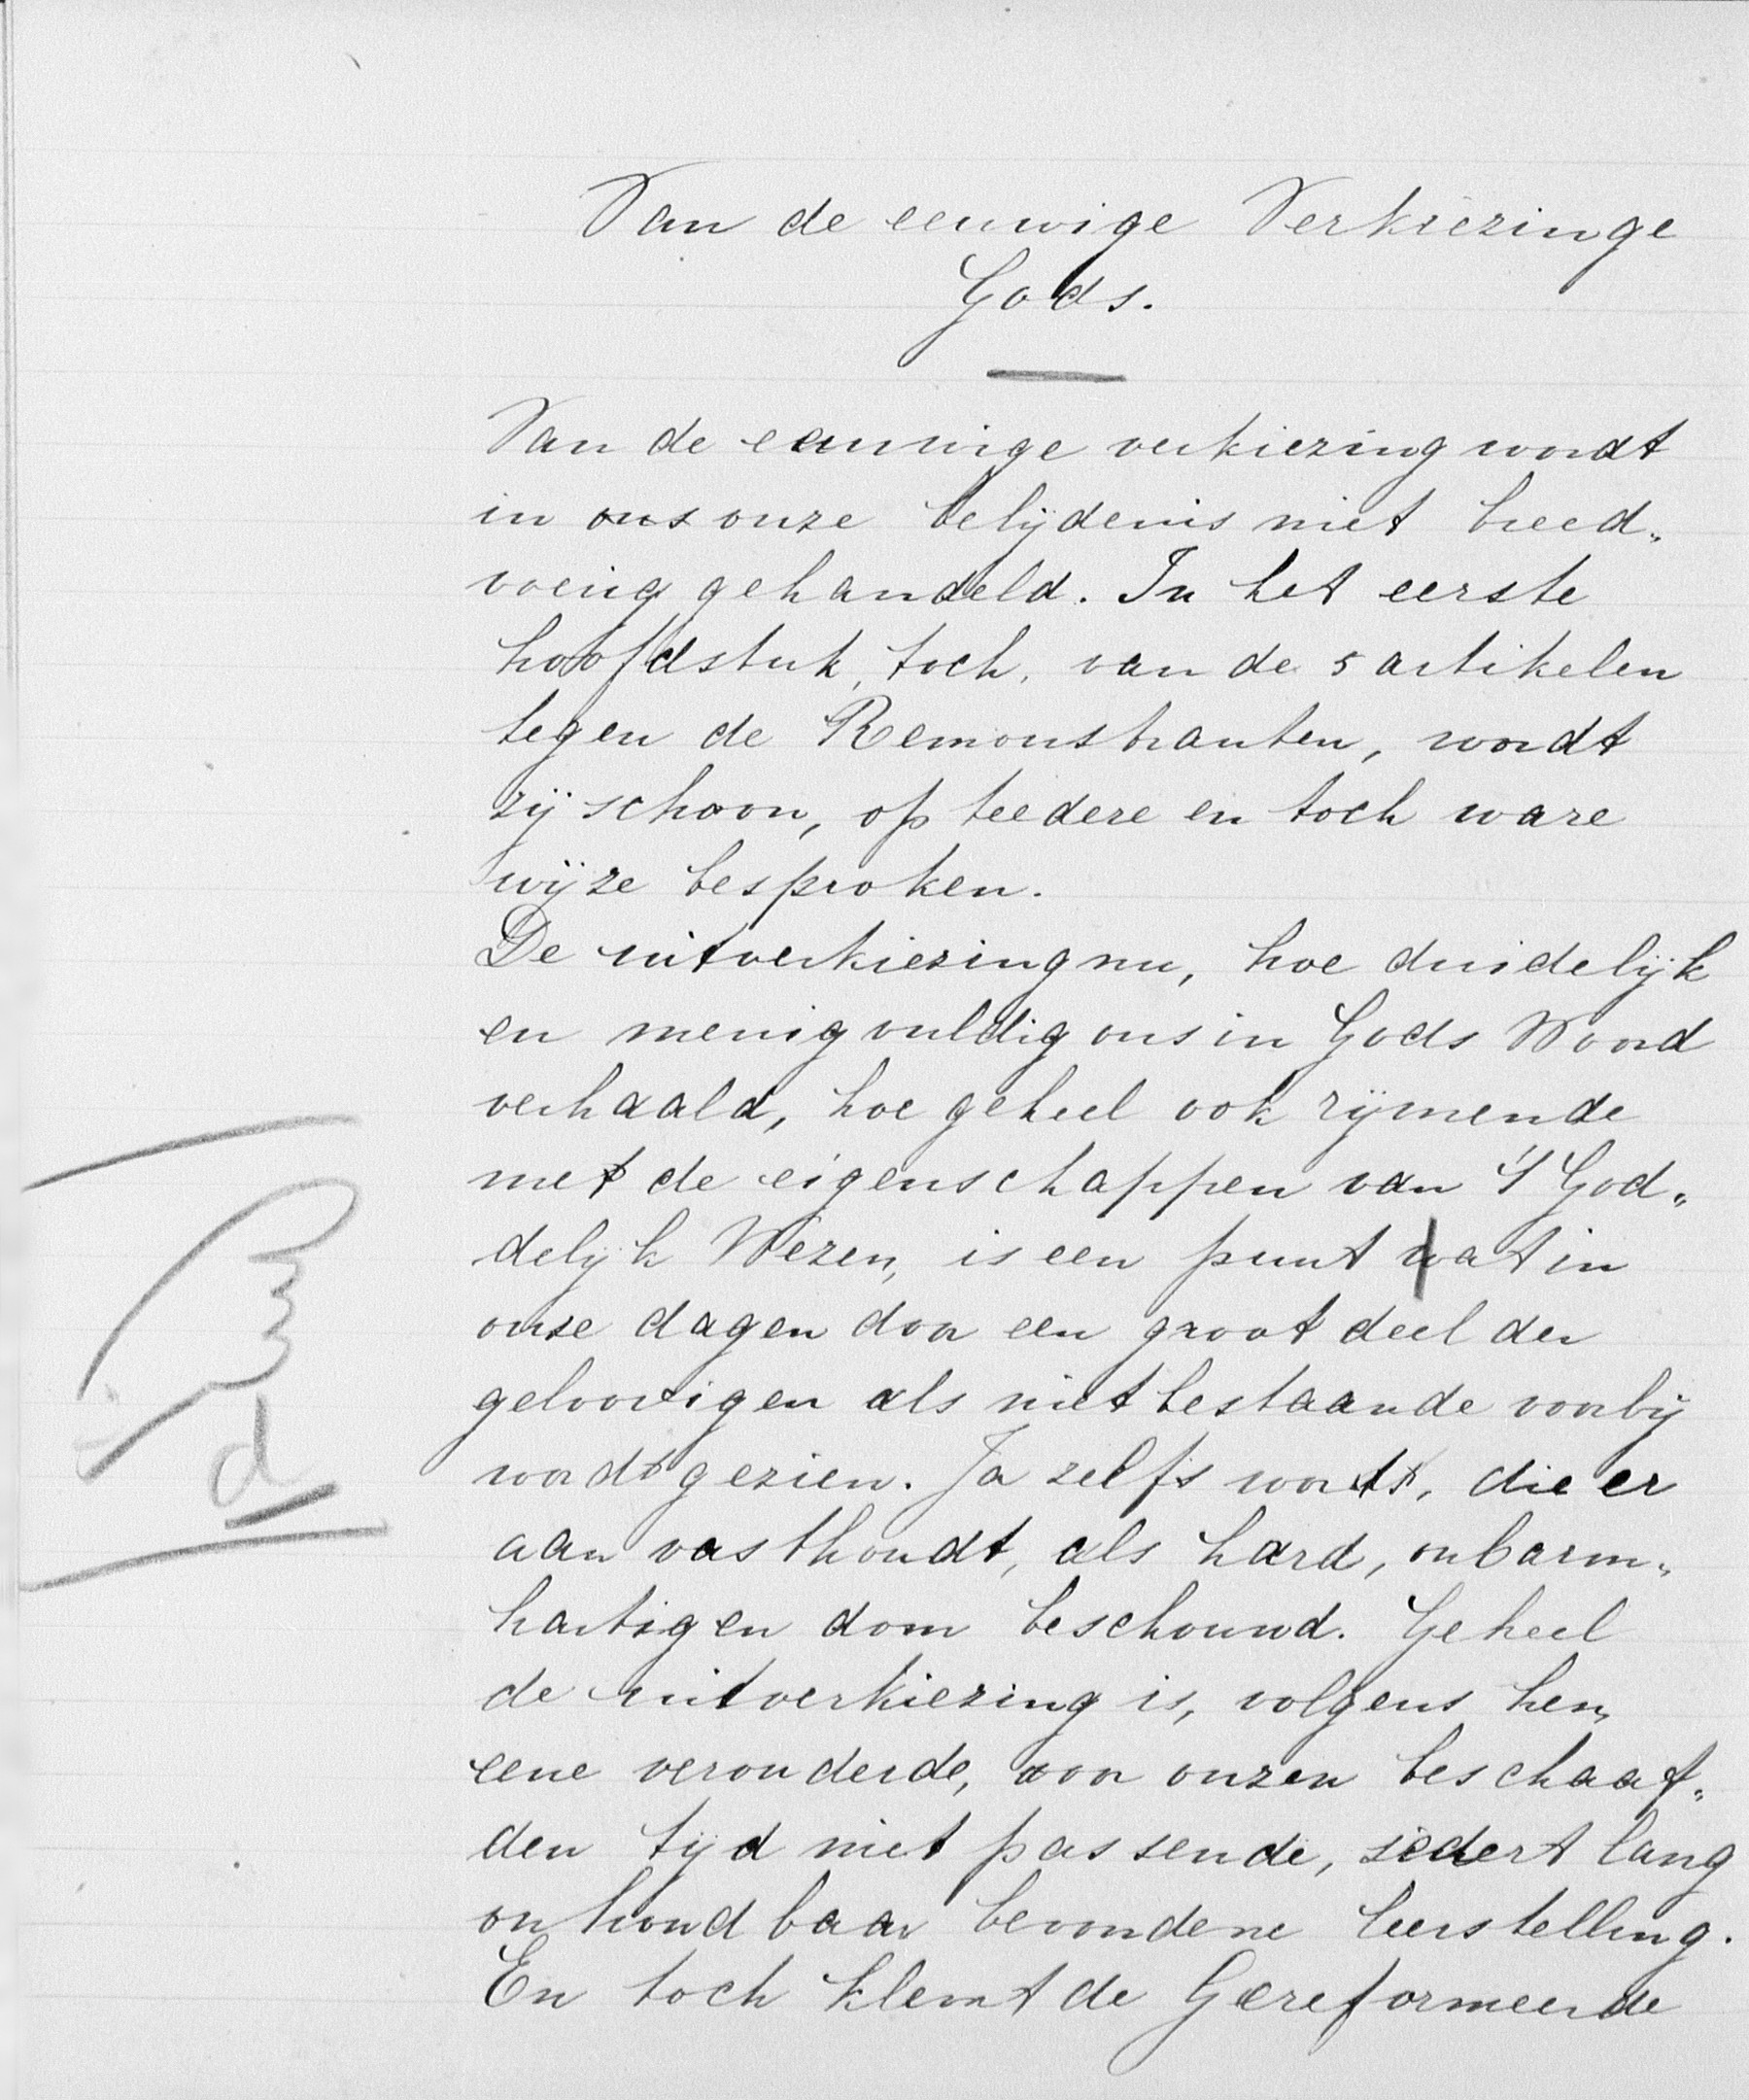 Van de eeuwige Verkiezinge
Gods.
Van de eeuwige verkiezing wordt
in ons onze belijdenis niet breed„
voerig gehandeld. In het eerste
hoofdstuk, toch, van de 5 artikelen
tegen de Remonstranten, wordt
zij schoon, op teedere en toch ware
wijze besproken.
De uitverkiezing nu, hoe duidelijk
en menigvuldig ons in Gods Woord
verhaald, hoe geheel ook rijmende
met de eigenschappen van 't God„
delijk Wezen, is een punt wat in
onze dagen door een groot deel der
geloovigen als niet bestaande voorbij
wordt gezien. Ja zelfs wordt, die er
aan vasthoudt, als hard, onbarm„
hartig en dom beschouwd. Geheel
de uitverkiezing is, volgens hen,
eene verouderde, voor onzen beschaaf„
den tijd niet passende, sedert lang
onhoudbaar bevondene leerstelling.
En toch klemt de Gereformeerde
d